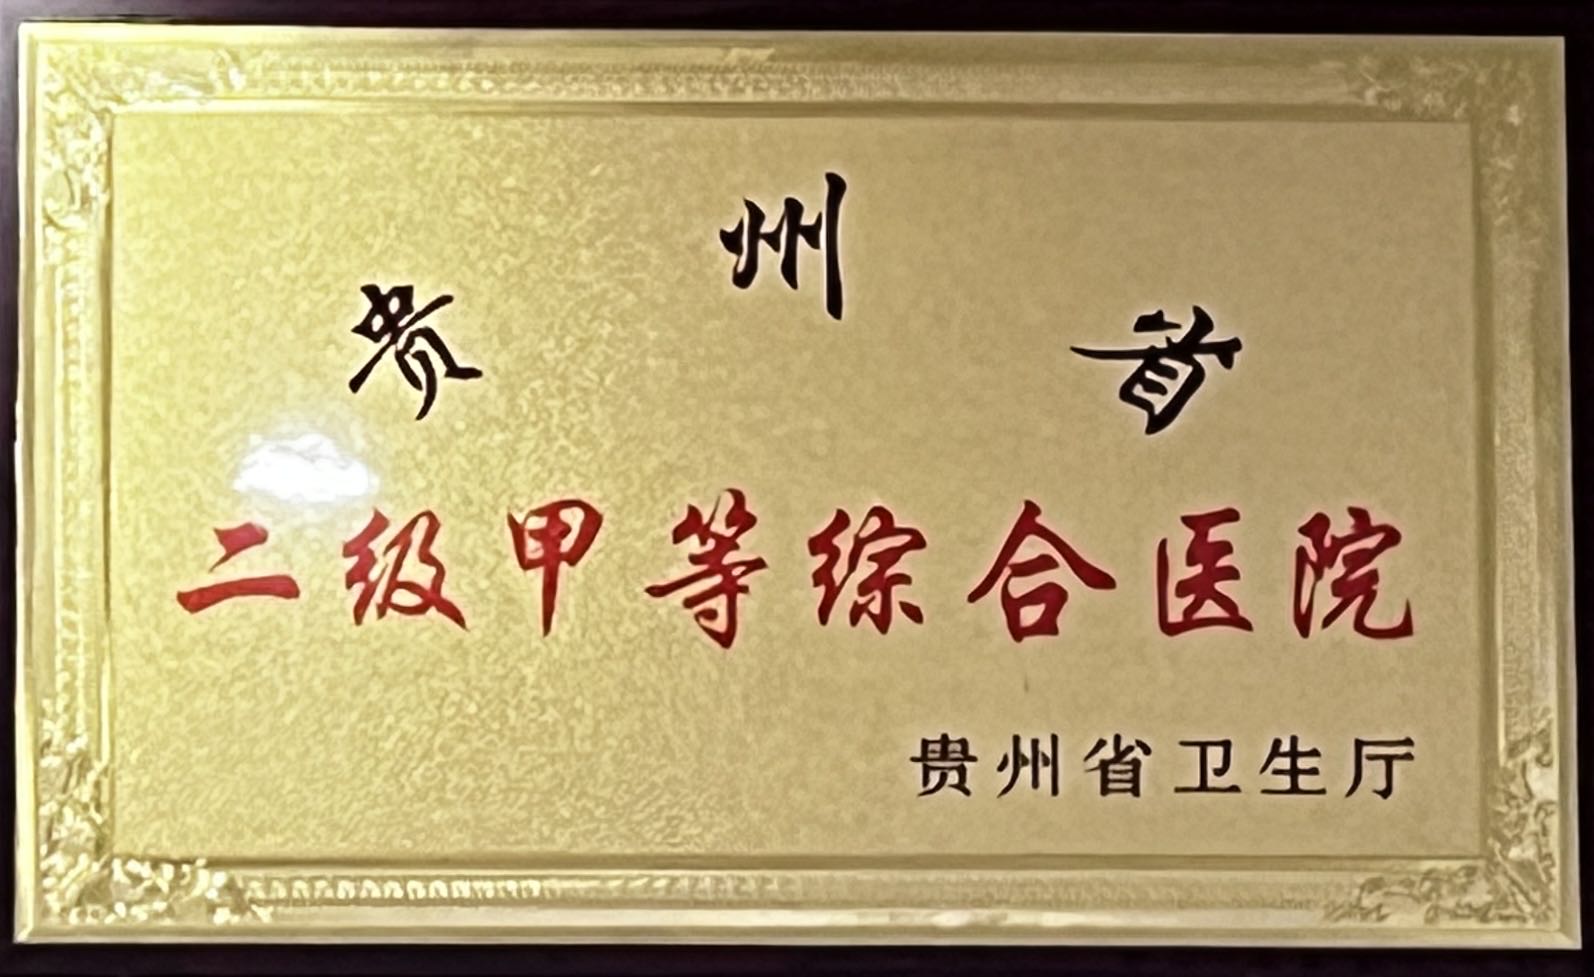 贵州省
二级甲等综合医院
贵州省卫生厅